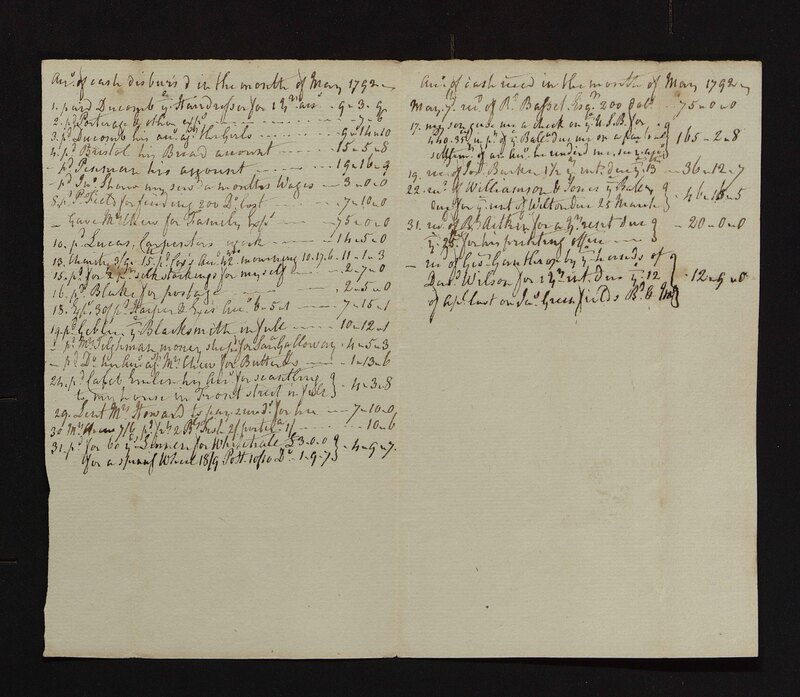 Acct. of cash disburs'd in the month of May 1792
1. pard Ducomb ye. Hairdresser for 1 qrs. acct - 9-3-9
2. pd. Porterage & other exp - 7-6
3. pd. Ducomb his acct. agt. the Girls - 9-14-10
4. pd. Bristol his Bread account - 15-5-8
- pd. Penman his account - 19-16-9
- pd. Jno. Shaw my servt. a months Wages - 3-0-0
5. pd. for feeding 200 cost - 7-10-0
- Gave Mrs. Chew for Family expe. - 75-0-0
10. pd. Lucas, Carpenters work - 14-5-0
13. Church 3/9. 15. pd. acct. mourning 10.17.6 - 11-1-3
15. pd. for 2 pr. silk stockings for myself - 2-7-0
16. pd. Blake for postage - 2-5-0
18. 30/ pd. Harper 6-5-1 - 7-15-1
19. pd. Blacksmith in full - 10-12-1
- pd. Mrs. Tilghman money for Saml. Galloway - 4-5-3
- pd. Do. her acct. agt. Mrs. Chew for Butter &c - 1-13-6
24. pd. Caleb Emlen his acct. for scantling
to my house in Front street in full - 4-3-8
29. Lent Mrs. Howard to pay for her - 7-10-0
30 7/6 pd. 2 porter 1/ - 10-6
31. pd. for 60 yds. Linnen for Whitehall £3-0-0
for a spinng Wheel 18/9 Pott. 10/10 Do. 1-9-7 - 4-9-7
Acct. of cash recd in the month of May 1792
May 7. rec. of Rd. Basset Esqr. 200 dolls - 75-0-0
17. my son gave me a check on ye. U.S.B. for
440.35 in pt. of ye. Balle. due me on a final
settlemt. of an acct. he rendd. me - 165-2-8
19. rec. of Jos. Barker 1/2 ys. rent. due ye. 13th - 36-12-7
22. rec. of Williamson & Jones ye. Bale.
due for ye. rent of Wilton due 25 March - 46-15-5
31. rec. of Rt. Aitkin for a qrs. rent due
ye. 25th. for his printing office - 20-0-0
- rec. of Geo. Ganthrop by ye. hands of
Wilson for 1 ys. rent. due ye. 12
of Apl. last on Jas. Greenfields - 12-9-0